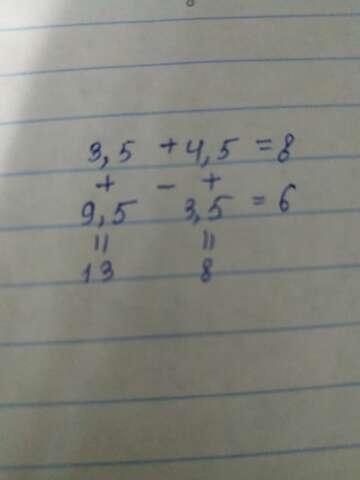 3,5 + 4,5 = 8
+ - +
9,5 3,5 = 6
॥ ॥
13 8